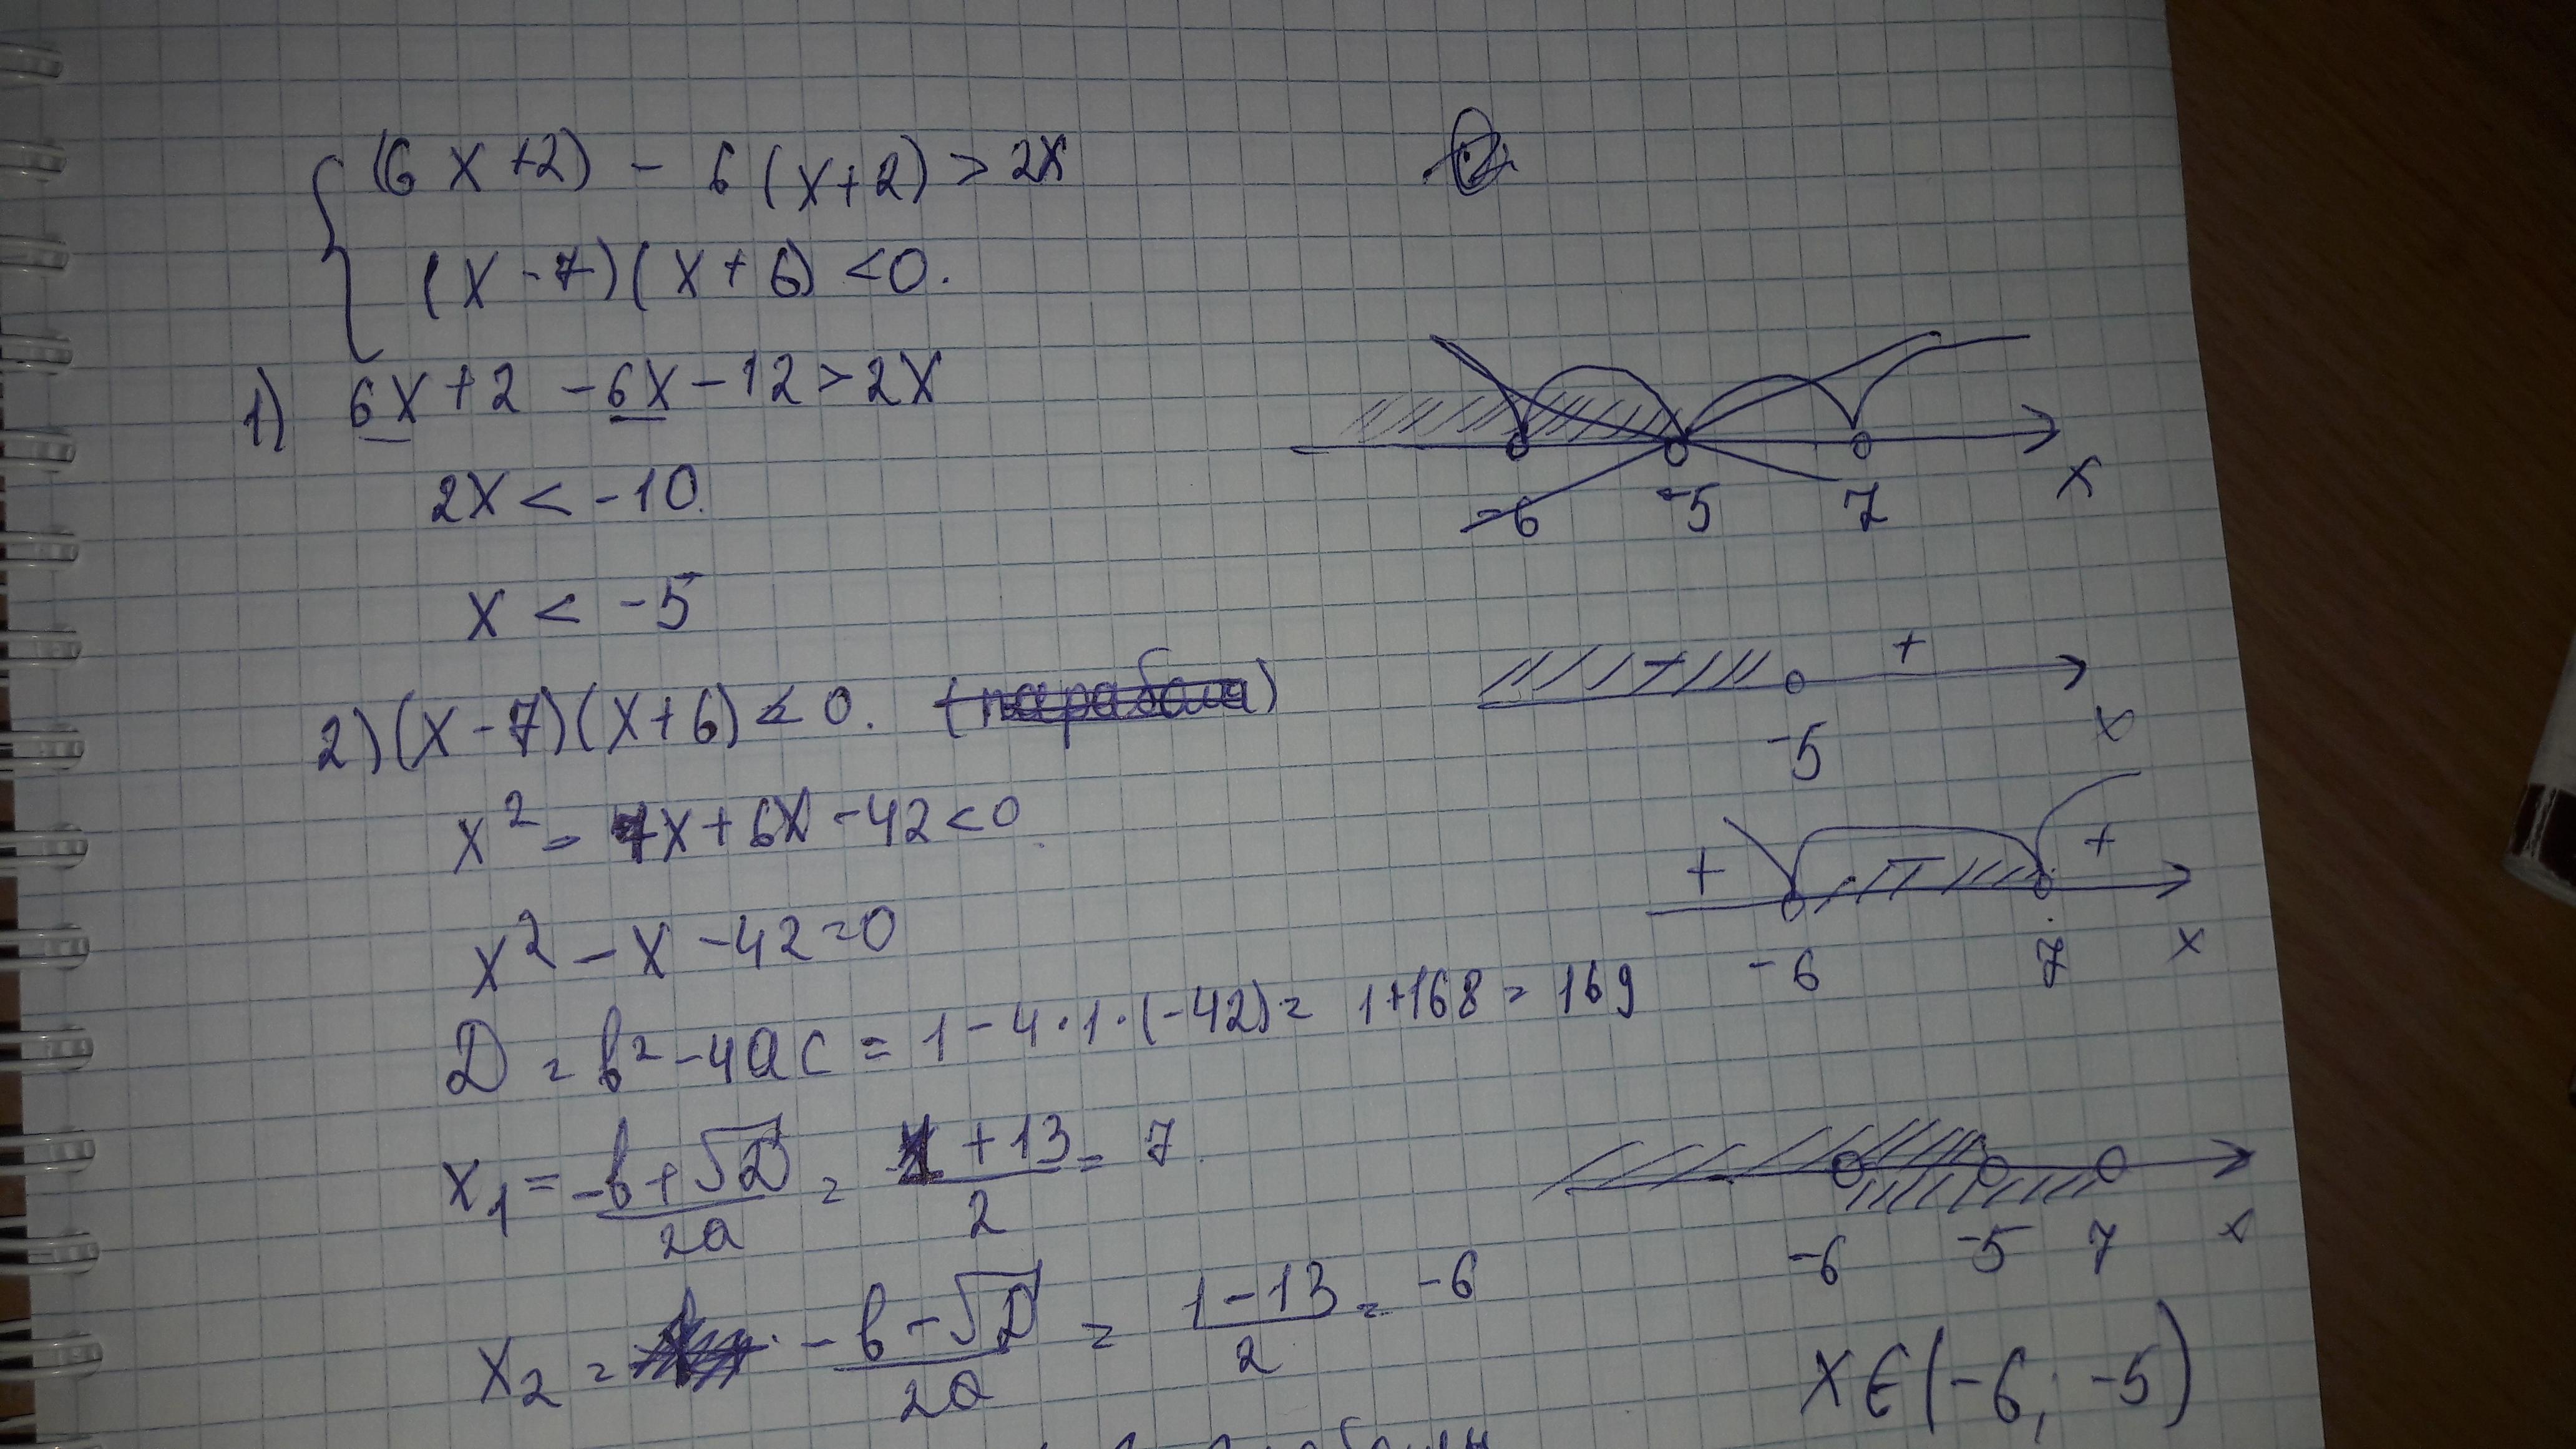 (6x+2) - 6(x+2) > 2x
(x-7)(x+6) < 0.
1) 6x+2 -6x-12 > 2x
2x < -10.
x < -5
2) (x-7)(x+6) < 0. (парабола)
x² - 7x+6x -42 < 0.
x² - x -42 = 0
D = b² -4ac = 1 - 4·1·(-42) = 1+168 = 169
x₁ = (-b+√D)/2a = (1+13)/2 = 7.
x₂ = (-b-√D)/2a = (1-13)/2 = -6
-6 -5 7 x
+
-5 x
+ - +
-6 7 x
-6 -5 7 x
x∈(-6; -5)